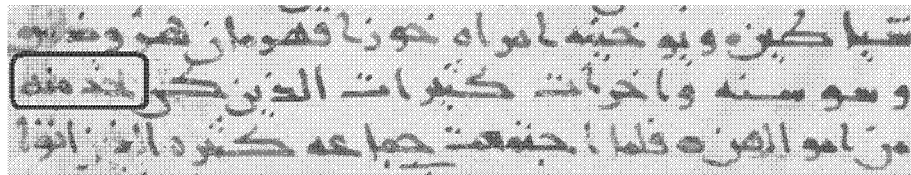 شياطين ويوحنه امراه خوزا قهرمان هيرودس
وسوسنه واخرات كثيرات الذين كن يخدمنه
من اموالهن فلما اجتمعت جماعه كثيره